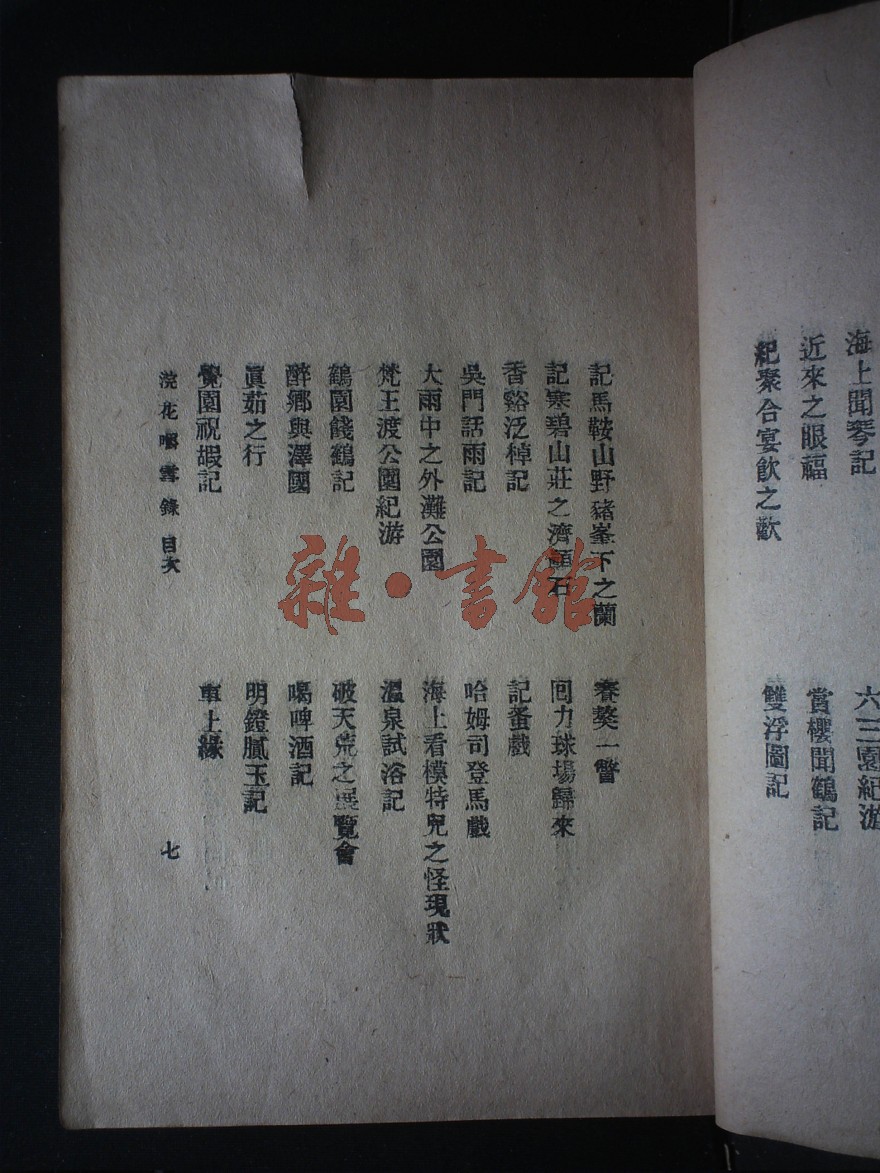 海上聞琴記
近來之眼福
紀聚合宴飲之歡
六三園紀游
賞櫻聞鶴記
雙浮圖記
記馬鞍山野豬峯下之蘭
記寒碧山莊之濟顛石
香谿泛棹記
吳門話雨記
大雨中之外灘公園
梵王渡公園紀游
鶴園餞鶴記
醉鄉與澤國
眞茹之行
覺園祝嘏記
春獒一瞥
回力球場歸來
記蚤戲
哈姆司登馬戲
海上看模特兒之怪現狀
溫泉試浴記
破天荒之展覽會
喝啤酒記
明鐙膩玉記
車上緣
浣花嚼雪錄 目次
七
雜·書館